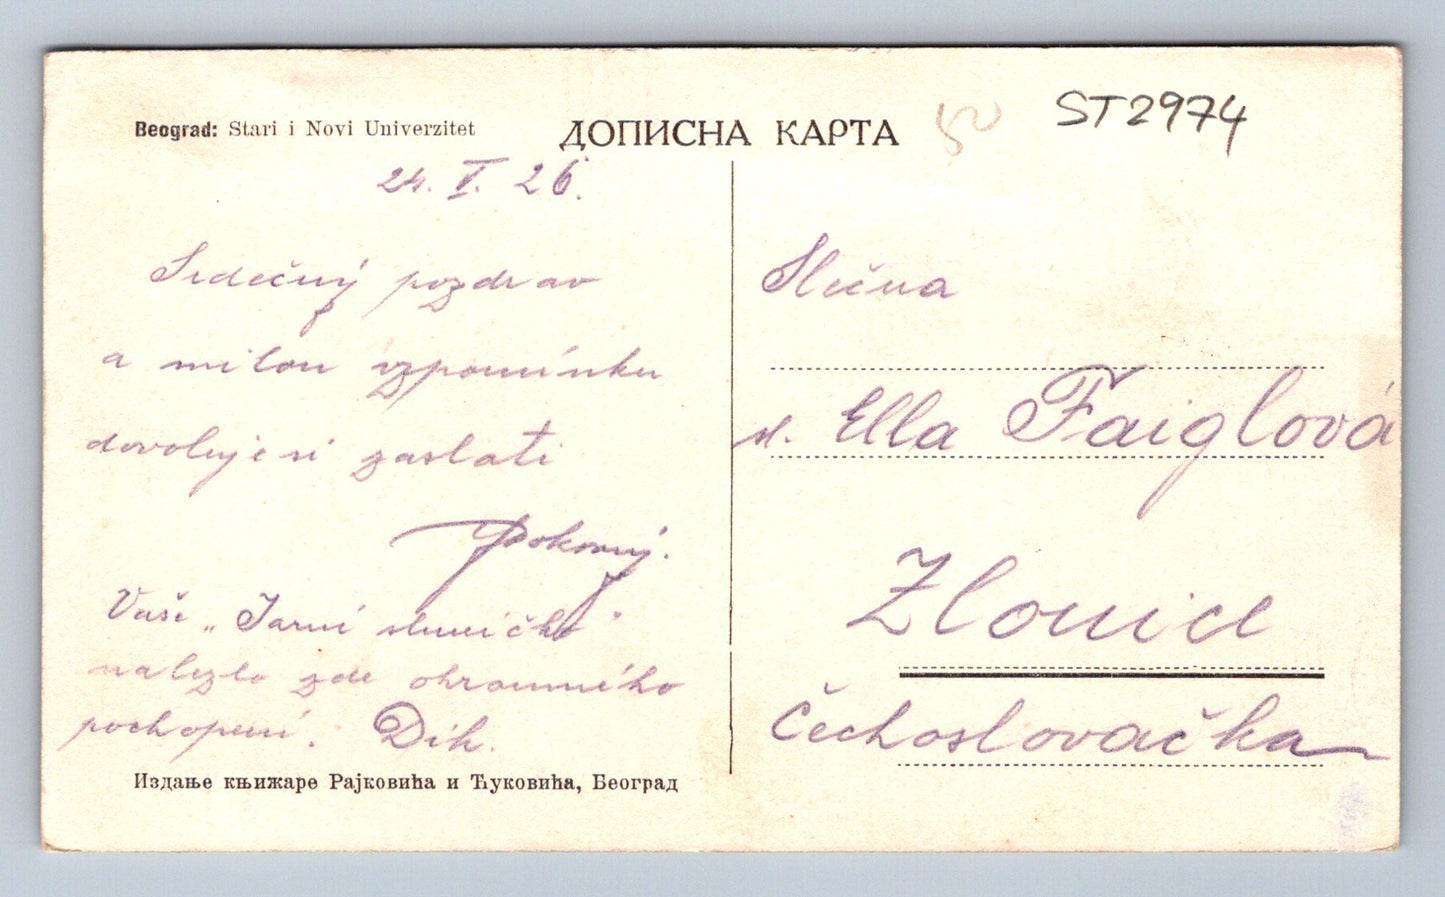 Beograd: Stari i Novi Univerzitet
ДОПИСНА КАРТА
50
ST2974
24. V. 26.
Srdečný pozdrav
a milou vzpomínku
dovoluje si zaslati
Pokorný.
Vaše „Jarní sluníčko"
nalezlo zde ohromného
pochopení. Dík.
Издање књижаре Рајковића и Ћуковића, Београд
Slečna
sl. Ella Faiglová
Zlonice
Čechoslovačka